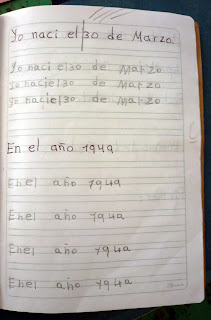 Yo naci el 30 de Marzo.
Yo naci el 30 de Marzo
Yo naciel 30 de Marzo
Yo naciel 30 de Marzo
En el año 1949
En el año 1949
En el año 1949
En el año 1949
En el año 1949